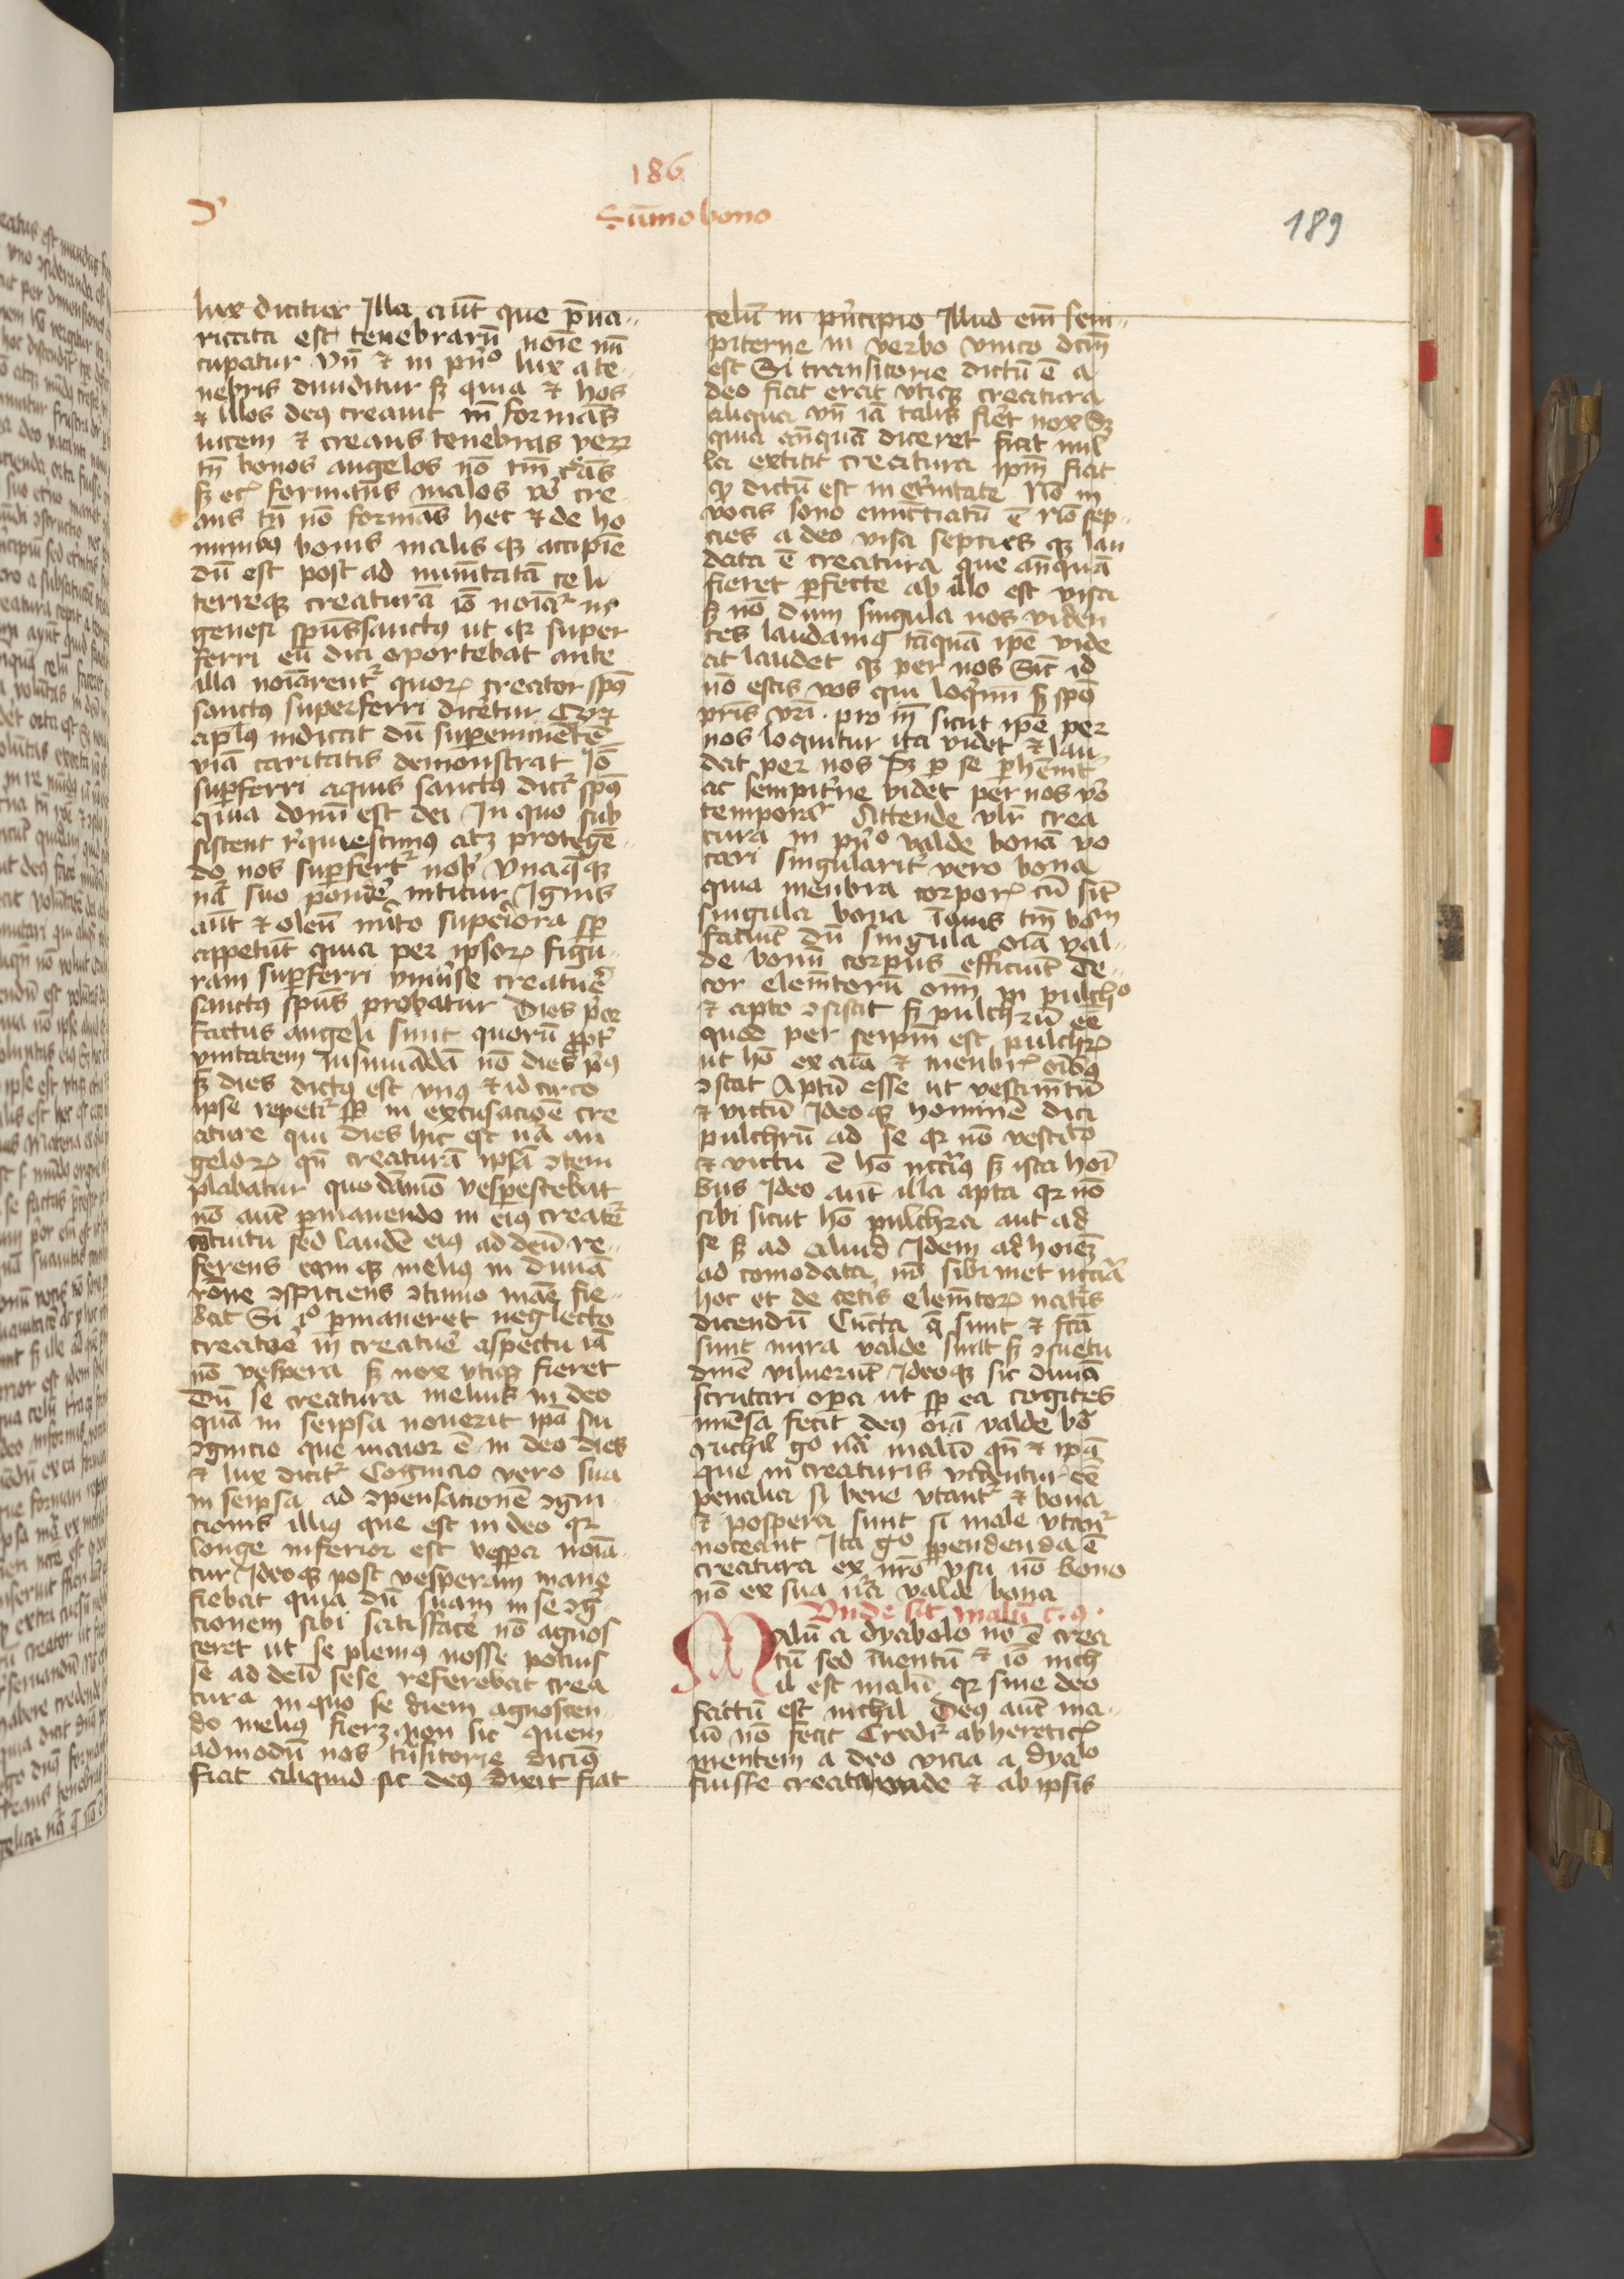 186
Sūmo bono
189
lux dicitur Illa aūt que p̄ua-
ricata est tenebrarū noīe nū
cupatur Vn̄ et in pn̄o lux a te-
nebris diuiditur sʒ quia et hos
et illos deus creauit in formās
lucem et creans tenebras verʒ
tn̄ bonos angelos nō tm̄ creās
sʒ etc̄ formans malos vō cre-
ans tn̄ nō formās hec et de ho
minibus bonis malisqʒ accipiē
dū est post ad nuntiatā celi
terreqʒ creaturā iō noīat̄ in
genesi spūssanctus ut qr super
ferri eū dici oportebat ante
illa noīarent̄ quorʒ creator spūs
sanctus superferri diceretur Qr et
apl̄us indicat dū supereminētē
viā caritatis demonstrat Iō
superferri aquis sanctus dicit̄ spūs
quia donū est dei In quo sub
sistent requiescimus atqʒ protegē-
do nos superfert̄ nob̄ Vnaqueqʒ
nā suo pondere nititur Ignis
aūt et oleū superiora sp̄
appetūt quia per ipsorʒ figu-
ram superferri vniūse creature
sanctus spūs probatur Dies
factus angeli sunt quorū ppt̄
vnitatem insinuādā nō dies primus
sʒ dies dictus est vnus et id circo
ipse repetit̄ sp̄ in excusacione cre
ature qui dies hic est nā an
gelorʒ qn̄ creaturā ipsā ↄtem
plabatur quodāmō vesperescebat
nō aūt permanendo in eius creature
ↄtuitu sed laudē eius ad deū re-
ferens eamqʒ melius in diuinā
rōne ↄspiciens ↄtinuo mane fie-
bat Si vero permaneret neglecto
creatore in creature aspectu iā
nō vespera sʒ nox vtiqʒ fieret
Dū se creatura melius in deo
quā in seipsa nouerit ipā sui
ↄgnicio que maior ē in deo dies
et lux dicit̄ Cognicio vero sua
in seipsa ad ↄpensacionē ↄgni-
cionis illius que est in deo qr
longe inferior est vespera noīa-
tur Ideoqʒ post vesperam mane
fiebat quia dū suam in se ↄg-
cionem sibi satisfacere nō agnos
ceret ut se plenius nosse potuis
se ad deū sese referebat crea
tura in quo se diem agnoscen-
do melius fierʒ non sic quem
admodū nos trāsitorie dicimus
fiat aliquid sic deus dixit fiat
celū in principio Illud em̄ sem-
piterne in verbo vnico dcm̄
est Si transitorie dictū ē a
deo fiat erat vtiqʒ creatura
aliqua vn̄ iā talis fieret vox Sʒ
quia anq̄uā diceret fiat nul
la extitit creatura ipm̄ fiat
quod dictū est in eternitate Nō in
vocis sono enunctiatū ē Nō sep-
cies a deo visa septiesqʒ lau
data ē creatura que anq̄uā
fieret perfecte ab illo est visa
sʒ nō dum singula nos viden
tes laudamus tāquā ipē vide
at laudetqʒ per nos Sic id
nō estis vos qui loquimi sʒ spūs
pris vri. pro in sicut ipē per
nos loquitur ita videt et lau-
dat per nos Sʒ p se perhēnit̄
ac sempiterne videt per nos vō
temporar̄ Attende vlr̄ crea
tura in pn̄o valde bonā vo
cari singularit̄ vero bona
quia menbra corporʒ cū sint
singula bona tm̄ bonum
faciūt dū singula oīa val-
de bonū corpus efficiūt De-
cor elemētorū oīm in pulchro
et apto ↄsistit sʒ pulchrū eē
quod per seipm̄ est pulchrʒ
ut hō ex aīa et menbris oībus
ↄstat Aptū esse ut vestimentū
et victū Ideoqʒ hominē dici
pulchrū ad se qr nō vestito
et victu ē hō nccrius sʒ ista hoī
bus Ideo aūt illa apta qr nō
sibi sicut hō pulchra aut ad
se sʒ ad aliud Idem ad hoīeʒ
ad comodata nō sibimet nccriā
hoc et de cetis elemētorʒ natis
dicendū Cuncta que sunt et fcā
sunt mira valde sunt sʒ ↄsuetu
dine viluerūt Ideoqʒ sic diuina
scrutari opera ut sp̄ ea cogites
imēsa fecit deus oīa valde bō
Nichil go nā malū qn̄ et ipa
que in creaturis videntur eē
penalia si bene vtant̄ et bona
et pospera sunt si male vtant̄
noceant Ita go ppendenda ē
creatura ex nrō vsu nō bono
nō ex sua nrā valde bona
Vnde sit malū c. 9.
Malū a dyabolo nō ē crea
tū sed inuentū et iō nich
il est malū qr sine deo
factū est nichil Deus aūt ma-
lū nō fecit Credit̄ ab hereticis
mentem a deo vicia a dyalo
fuisse creata vnde et ab ipsis